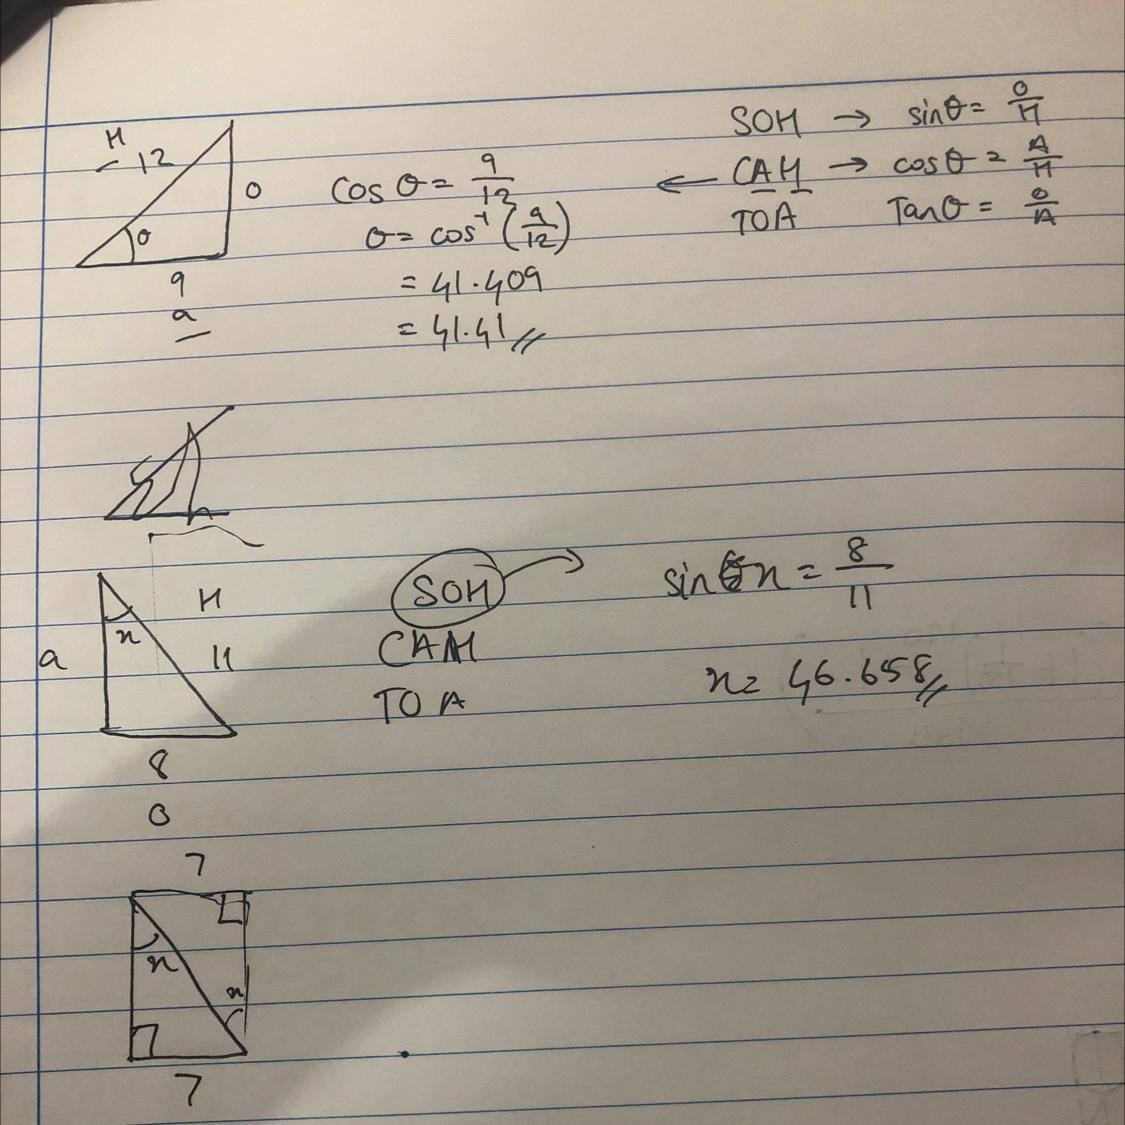 H
12
O
θ
9
a
cos θ = 9/12
θ = cos⁻¹ (9/12)
= 41.409
= 41.41 //
SOH → sinθ = O/H
← CAH → cosθ = A/H
TOA Tanθ = O/A
H
x
a
11
8
O
SOH →
CAH
TOA
sin x = 8/11
x = 46.658 //
7
x
x
7